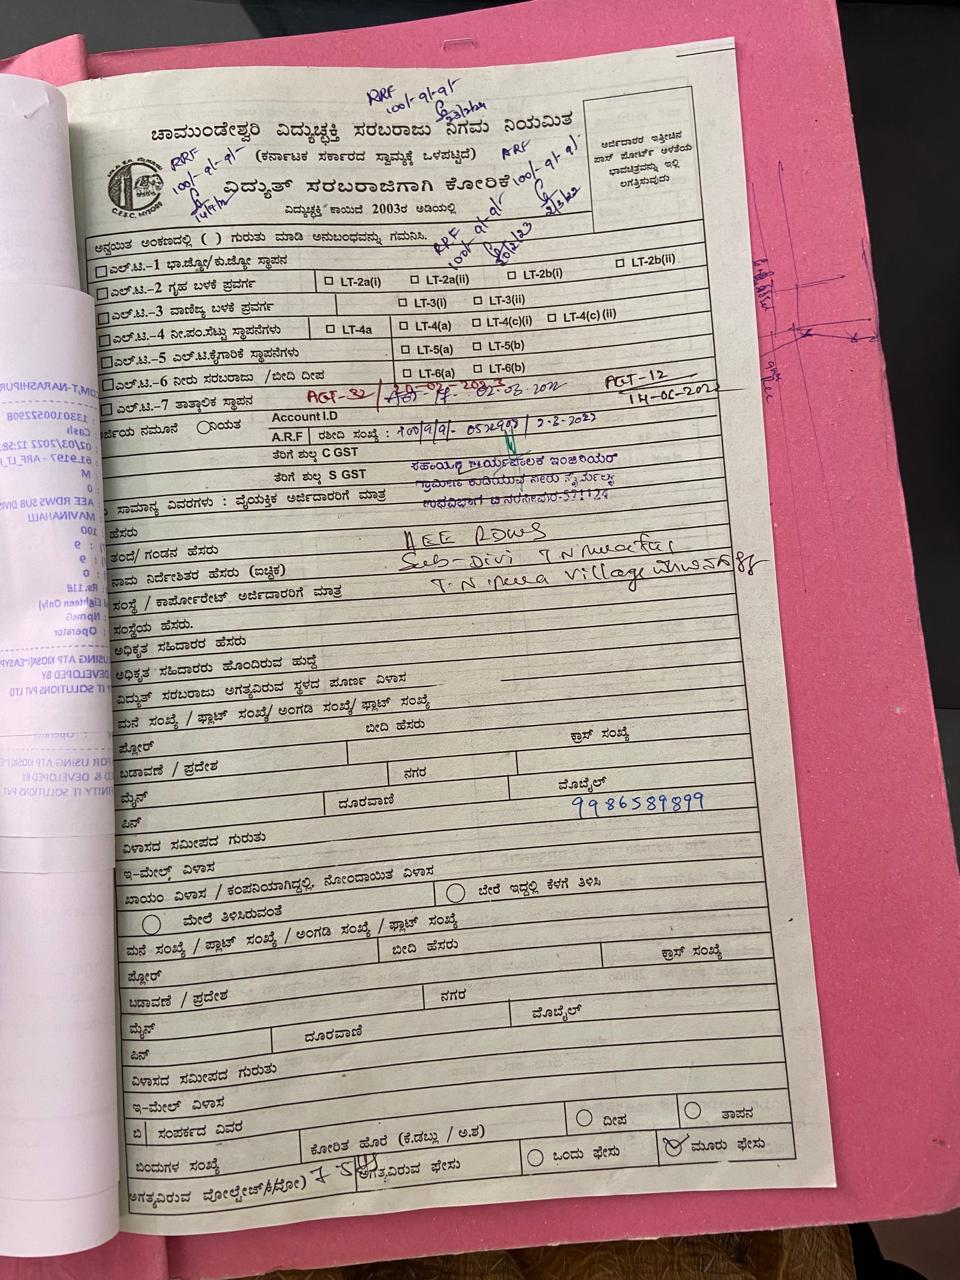 RRF
100/-9/-9/-
23/2/24
ಚಾಮುಂಡೇಶ್ವರಿ ವಿದ್ಯುಚ್ಛಕ್ತಿ ಸರಬರಾಜು ನಿಗಮ ನಿಯಮಿತ
(ಕರ್ನಾಟಕ ಸರ್ಕಾರದ ಸ್ವಾಮ್ಯಕ್ಕೆ ಒಳಪಟ್ಟಿದೆ)
RRF
100/-9/-9/-
ARF
100/-9/-9/-
2/3/22
C.E.S.C. MYSORE
ವಿದ್ಯುತ್ ಸರಬರಾಜಿಗಾಗಿ ಕೋರಿಕೆ
ವಿದ್ಯುಚ್ಛಕ್ತಿ ಕಾಯಿದೆ 2003ರ ಅಡಿಯಲ್ಲಿ
RRF
100/-9/-9/-
20/2/23
ಅರ್ಜಿದಾರರ ಇತ್ತೀಚಿನ
ಪಾಸ್ ಪೋರ್ಟ್ ಅಳತೆಯ
ಭಾವಚಿತ್ರವನ್ನು ಇಲ್ಲಿ
ಲಗತ್ತಿಸುವುದು
ಅನ್ವಯಿತ ಅಂಕಣದಲ್ಲಿ ( ) ಗುರುತು ಮಾಡಿ ಅನುಬಂಧವನ್ನು ಗಮನಿಸಿ.
ಎಲ್.ಟಿ.-1 ಭಾ.ಜ್ಯೋ/ಕು.ಜ್ಯೋ ಸ್ಥಾಪನ
ಎಲ್.ಟಿ.-2 ಗೃಹ ಬಳಕೆ ಪ್ರವರ್ಗ LT-2a(i) LT-2a(ii) LT-2b(i) LT-2b(ii)
ಎಲ್.ಟಿ.-3 ವಾಣಿಜ್ಯ ಬಳಕೆ ಪ್ರವರ್ಗ LT-3(i) LT-3(ii)
ಎಲ್.ಟಿ.-4 ನೀ.ಪಂ.ಸೆಟ್ಟು ಸ್ಥಾಪನೆಗಳು LT-4a LT-4(a) LT-4(c)(i) LT-4(c) (ii)
ಎಲ್.ಟಿ.-5 ಎಲ್.ಟಿ.ಕೈಗಾರಿಕೆ ಸ್ಥಾಪನೆಗಳು LT-5(a) LT-5(b)
ಎಲ್.ಟಿ.-6 ನೀರು ಸರಬರಾಜು /ಬೀದಿ ದೀಪ LT-6(a) LT-6(b)
ಎಲ್.ಟಿ.-7 ತಾತ್ಕಾಲಿಕ ಸ್ಥಾಪನ
AGT-32 / 20-02-2023
02-03-2022
AGT-12
14-06-2022
ರ್ಜಿಯ ನಮೂನೆ ನಿಯತ Account I.D
A.R.F ರಶೀದಿ ಸಂಖ್ಯೆ : 100/9/9/- 0522908 / 2-3-2022
ತೆರಿಗೆ ಶುಲ್ಕ C GST
ತೆರಿಗೆ ಶುಲ್ಕ S GST
ಸಹಾಯಕ ಕಾರ್ಯಪಾಲಕ ಇಂಜಿನಿಯರ್
ಗ್ರಾಮೀಣ ಕುಡಿಯುವ ನೀರು ನೈರ್ಮಲ್ಯ
ಉಪವಿಭಾಗ ಟಿ ನರಸೀಪುರ-571124
ಸಾಮಾನ್ಯ ವಿವರಗಳು : ವೈಯಕ್ತಿಕ ಅರ್ಜಿದಾರರಿಗೆ ಮಾತ್ರ
ಹೆಸರು AEE RDWS
ತಂದೆ/ ಗಂಡನ ಹೆಸರು Sub-Divi T N
ನಾಮ ನಿರ್ದೇಶಿತರ ಹೆಸರು (ಐಚ್ಛಿಕ) T.N pura Village
ಸಂಸ್ಥೆ / ಕಾರ್ಪೋರೇಟ್ ಅರ್ಜಿದಾರರಿಗೆ ಮಾತ್ರ
ಸಂಸ್ಥೆಯ ಹೆಸರು.
ಅಧಿಕೃತ ಸಹಿದಾರರ ಹೆಸರು
ಅಧಿಕೃತ ಸಹಿದಾರರು ಹೊಂದಿರುವ ಹುದ್ದೆ
ವಿದ್ಯುತ್ ಸರಬರಾಜು ಅಗತ್ಯವಿರುವ ಸ್ಥಳದ ಪೂರ್ಣ ವಿಳಾಸ
ಮನೆ ಸಂಖ್ಯೆ / ಫ್ಲಾಟ್ ಸಂಖ್ಯೆ/ ಅಂಗಡಿ ಸಂಖ್ಯೆ/ ಫ್ಲಾಟ್ ಸಂಖ್ಯೆ
ಪ್ಲೋರ್ ಬೀದಿ ಹೆಸರು ಕ್ರಾಸ್ ಸಂಖ್ಯೆ
ಬಡಾವಣೆ / ಪ್ರದೇಶ ನಗರ
ಮೈನ್ ದೂರವಾಣಿ ಮೊಬೈಲ್
ಪಿನ್ 9986589899
ವಿಳಾಸದ ಸಮೀಪದ ಗುರುತು
ಇ-ಮೇಲ್ ವಿಳಾಸ
ಖಾಯಂ ವಿಳಾಸ / ಕಂಪನಿಯಾಗಿದ್ದಲ್ಲಿ, ನೋಂದಾಯಿತ ವಿಳಾಸ
ಮೇಲೆ ತಿಳಿಸಿರುವಂತೆ ಬೇರೆ ಇದ್ದಲ್ಲಿ ಕೆಳಗೆ ತಿಳಿಸಿ
ಮನೆ ಸಂಖ್ಯೆ / ಪ್ಲಾಟ್ ಸಂಖ್ಯೆ / ಅಂಗಡಿ ಸಂಖ್ಯೆ / ಫ್ಲಾಟ್ ಸಂಖ್ಯೆ
ಪ್ಲೋರ್ ಬೀದಿ ಹೆಸರು ಕ್ರಾಸ್ ಸಂಖ್ಯೆ
ಬಡಾವಣೆ / ಪ್ರದೇಶ ನಗರ
ಮೈನ್ ದೂರವಾಣಿ ಮೊಬೈಲ್
ಪಿನ್
ವಿಳಾಸದ ಸಮೀಪದ ಗುರುತು
ಇ-ಮೇಲ್ ವಿಳಾಸ
ಬಿ ಸಂಪರ್ಕದ ವಿವರ
ಬಿಂದುಗಳ ಸಂಖ್ಯೆ ಕೋರಿತ ಹೊರೆ (ಕೆ.ಡಬ್ಲು / ಅ.ಶ) ದೀಪ ತಾಪನ
ಅಗತ್ಯವಿರುವ ವೋಲ್ಟೇಜ್ ಅಗತ್ಯವಿರುವ ಫೇಸು ಒಂದು ಫೇಸು ಮೂರು ಫೇಸು